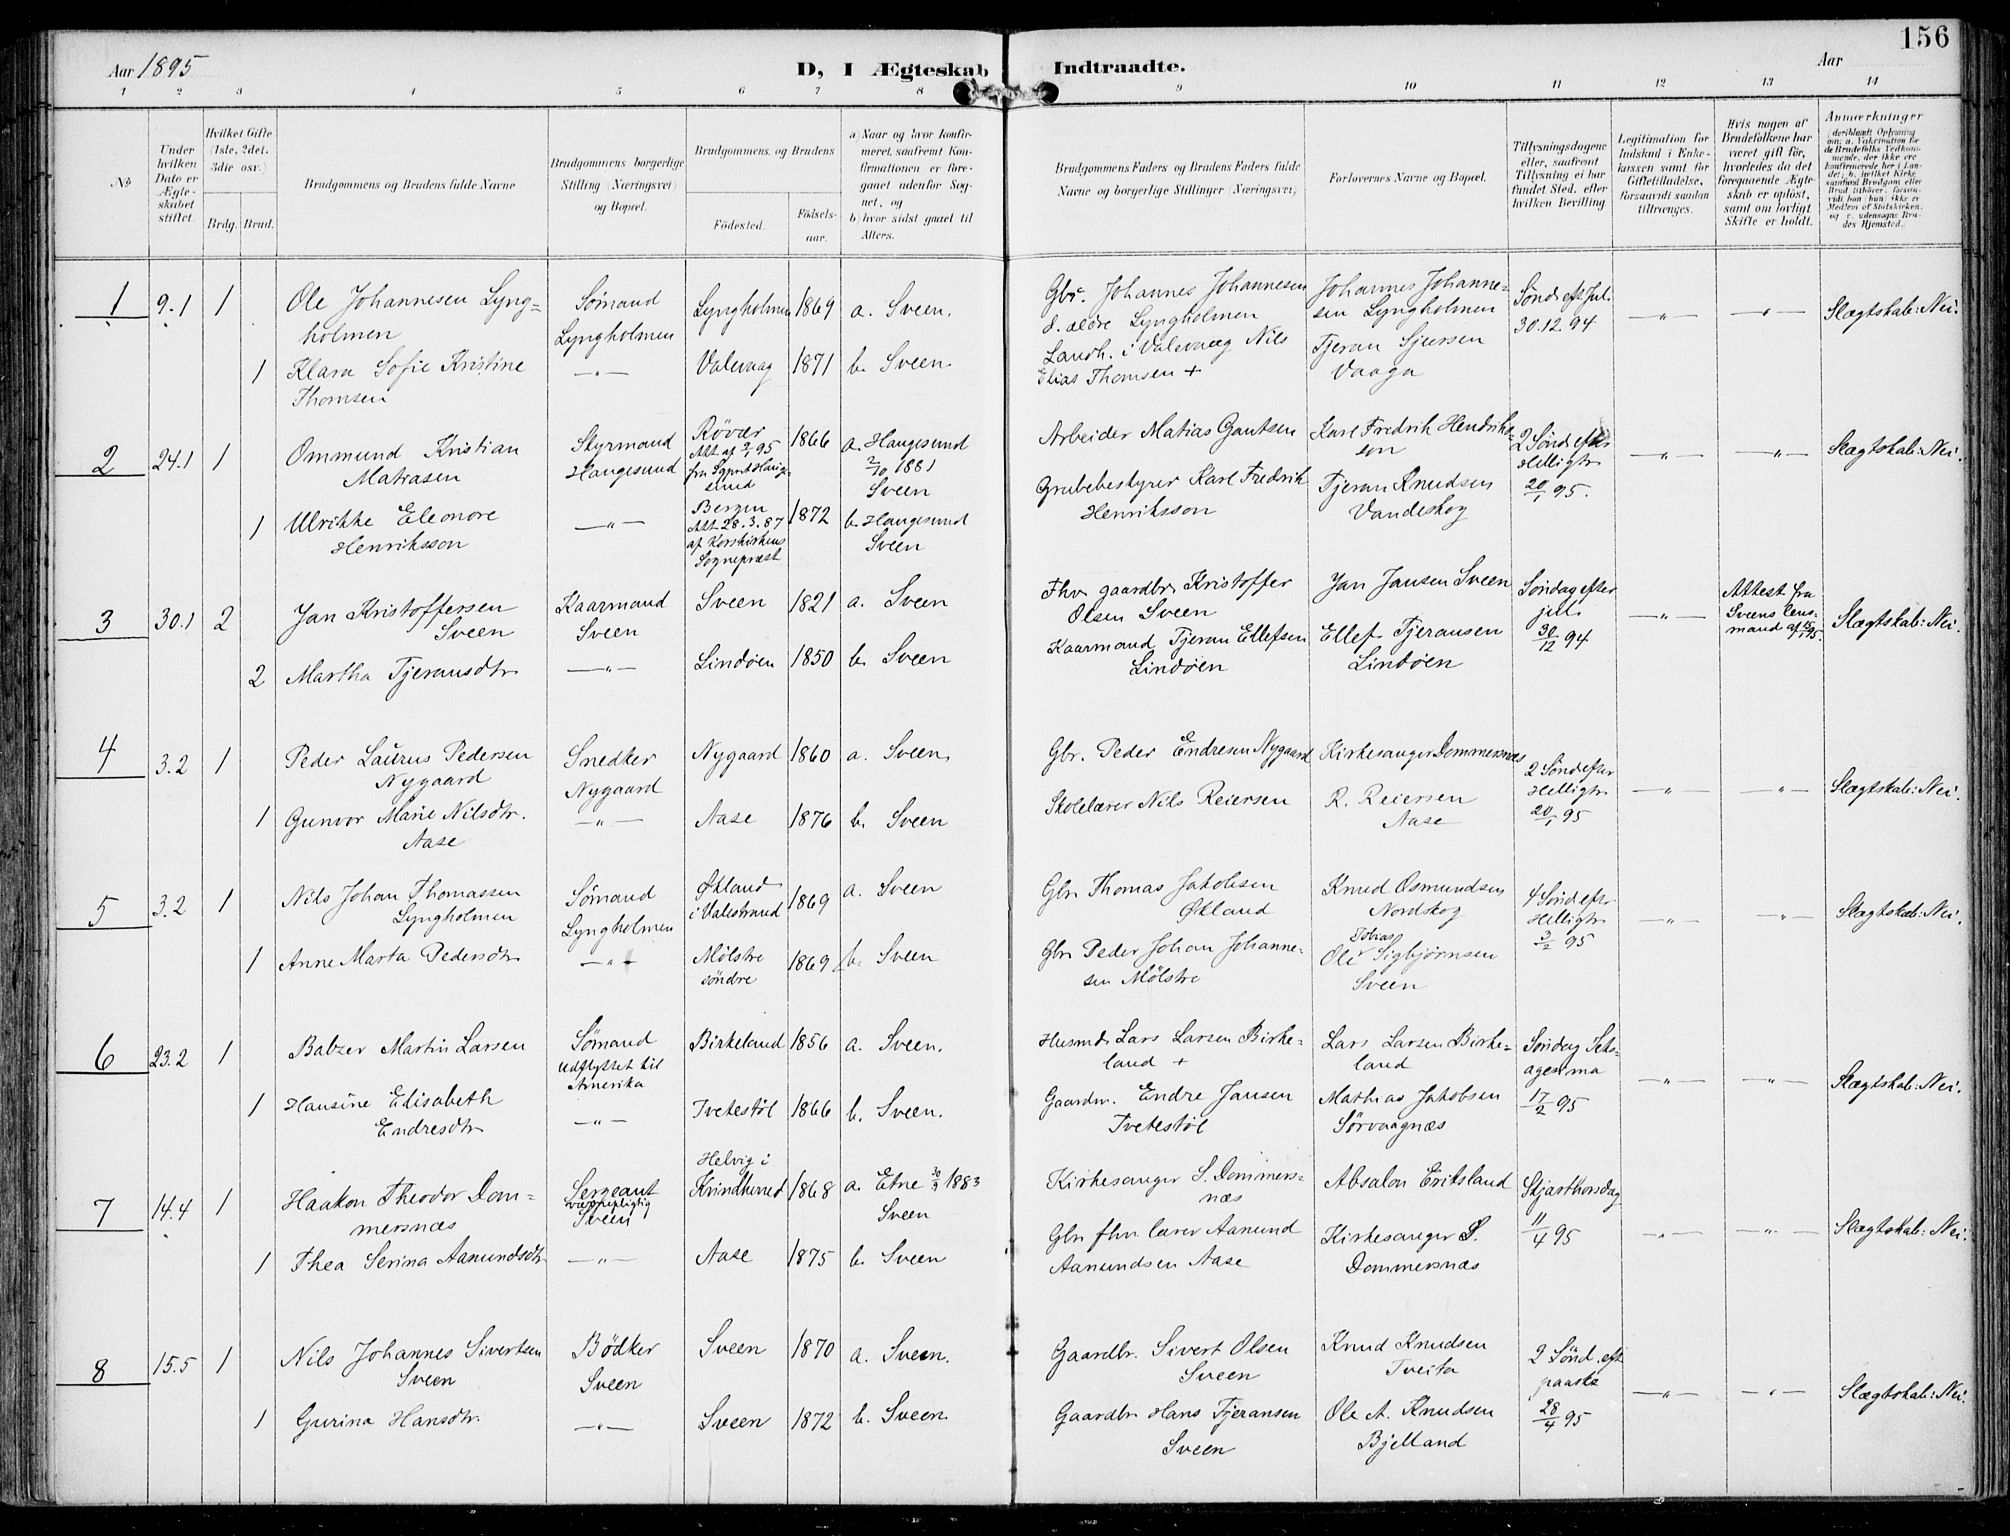 156
Aar 1895
D, I Ægteskab Indtraadte.
Aar
1 2 3 4 5 6 7 8 9 10 11 12 13 14
No
Under hvilken Dato er Ægteskabet stiftet.
Hvilket Gifte (1ste, 2det, 3die osv.)
Brdg. Brud.
Brudgommens og Brudens fulde Navne
Brudgommens borgerlige Stilling (Næringsvei) og Bopæl.
Brudgommens og Brudens
Fødested.
Fødselsaar.
a) Naar og hvor Konfirmeret, saafremt Konfirmationen er foregaaet udenfor Sognet, og
b) hvor sidst gaaet til Alters.
Brudgommens Faders og Brudens Faders fulde Navne og borgerlige Stillinger (Næringsvei)
Forlovernes Navne og Bopæl.
Tillysningsdagene eller, saafremt Tillysning ei har fundet Sted, efter hvilken Bevilling.
Legitimation for Indskud i Enkekassen samt for Giftetilladelse, forsaavidt saadan tiltrænges.
Hvis nogen af Brudefolkene har været gift før, hvorledes da det foregaaende Ægteskab er opløst, samt om lovligt Skifte er holdt.
Anmærkninger
1 9.1 1
Ole Johannesen Lyngholmen
Sømand Lyngholmen
Lyngholmen 1869 a. Sveen.
Gbr. Johannes Johannesen d. ældre Lyngholmen
Johannes Johannesen Lyngholmen
Sønd. eft. Jul. 30.12.94
—"— —"— Slægtskab: Nei.
1 Klara Sofie Kristine Thomsen
—"— Valevaag 1871 b. Sveen.
Landh. i Valevaag Nils Elias Thomsen +
Tjeran Sjursen Vaaga
2 24.1 1
Ommund Kristian Matiasen
Styrmand Haugesund
Røvær Att. af 2/1 95 fra Sgprst Haugesund
1866 a. Haugesund 2/10 1881 Sveen
Arbeider Matias Gautsen
Karl Fredrik Hendriksson
2 Sønd efter Helligtr 20/1 95.
—"— —"— Slægtskab: Nei.
1 Ulrikke Eleonore Henriksson
—"— Bergen Att 28.3.87 af Korskirkens Sognepræst
1872 b. Haugesund Sveen
Grubebestyrer Karl Fredrik Henriksson
Tjeran Knudsen Vandeskog
3 30.1 2
Jan Kristoffersen Sveen
Kaarmand Sveen
Sveen 1821 a. Sveen
Fhv. gaardbr. Kristoffer Olsen Sveen
Jan Jansen Sveen
Søndag efter jul 30/12 94
—"— Attest fra Sveens lensmand af 15/1 95
Slægtskab: Nei.
2 Martha Tjeransdtr
—"— Lindøen 1850 b. Sveen
Kaarmand Tjeran Ellefsen Lindøen
Ellef Tjeransen Lindøen
4 3.2 1
Peder Laurus Pedersen Nygaard
Snedker Nygaard
Nygaard 1860 a. Sveen
Gbr. Peder Endresen Nygaard
Kirkesanger Dommersnæs
2 Sønd efter Helligtr 20/1 95
—"— —"— Slægtskab: Nei.
1 Gunvor Marie Nilsdtr. Aase
—"— Aase 1876 b. Sveen
Skolelærer Nils Reiersen
R. Reiersen Aase
5 3.2 1
Nils Johan Thomassen Lyngholmen
Sømand Lyngholmen
Økland i Valestrand 1869 a. Sveen
Gbr Thomas Jakobsen Økland
Knud Osmundsen Nordskog
4 Sønd eftr Helligtr 3/2 95
—"— —"— Slægtskab: Nei.
1 Anne Marta Pedersdtr
—"— Mølstre søndre 1869 b. Sveen
Gbr Peder Johan Johannesen Mølstre
Ole Tobias Sigbjørnsen Sveen
6 23.2 1
Balzer Martin Larsen
Sømand udflyttet til Amerika
Birkeland 1856 a. Sveen.
Husmd. Lars Larsen Birkeland +
Lars Larsen Birkeland
Søndag Seksagesima 17/2 95
—"— —"— Slægtskab: Nei.
1 Hansine Elisabeth Endresdtr
—"— Tvetestøl 1866 b. Sveen.
Gaardm. Endre Jansen Tvetestøl
Mathias Jakobsen Sørvaagnæs
7 14.4 1
Haakon Theodor Dommersnæs
Sergeant værnepligtig Sveen
Helvig i Kvindherred 1868 a. Etne 30/9 1883 Sveen
Kirkesanger S. Dommersnæs
Absalon Eriksland
Skjærthorsdag 11/4 95
—"— —"— Slægtskab: Nei.
1 Thea Serina Aamundsdtr
—"— Aase 1875 b. Sveen
Gbr fhv lærer Aamund Aamundsen Aase
Kirkesanger S. Dommersnæs
8 15.5 1
Nils Johannes Sivertsen Sveen
Bødker Sveen
Sveen 1870 a. Sveen.
Gaardbr. Sivert Olsen Sveen
Knud Knudsen Tveita
2 Sønd. eft paaske 28/4 95
—"— —"— Slægtskab: Nei.
1 Gurina Hansdtr.
—"— Sveen 1872 b. Sveen.
Gaardbr Hans Tjeransen Sveen
Ole A. Knudsen Bjelland